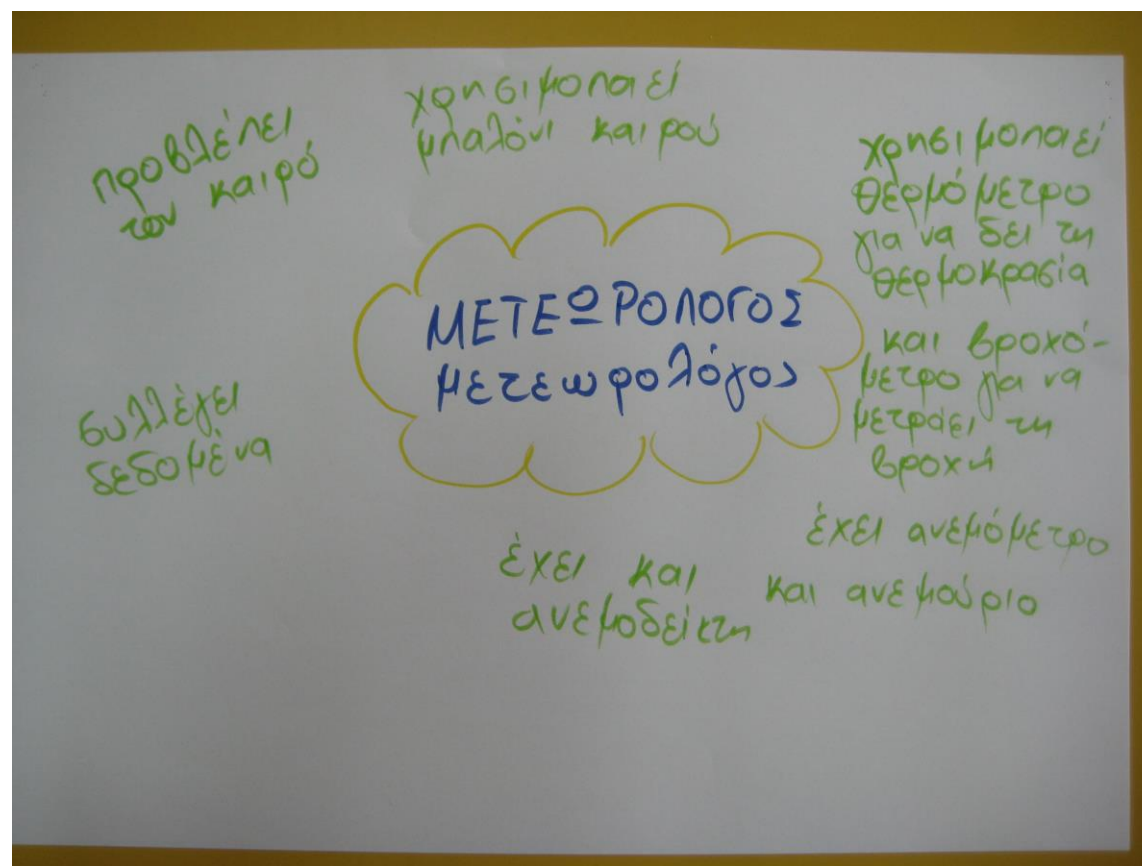 προβλέπει
τον καιρό
χρησιμοποιεί
μπαλόνι καιρού
χρησιμοποιεί
θερμόμετρο
για να δει τη
θερμοκρασία
και βροχό-
μετρο για να
μετράει τη
βροχή
ΜΕΤΕΩΡΟΛΟΓΟΣ
μετεωρολόγος
συλλέγει
δεδομένα
έχει ανεμόμετρο
και ανεμούριο
έχει και
ανεμοδείκτη